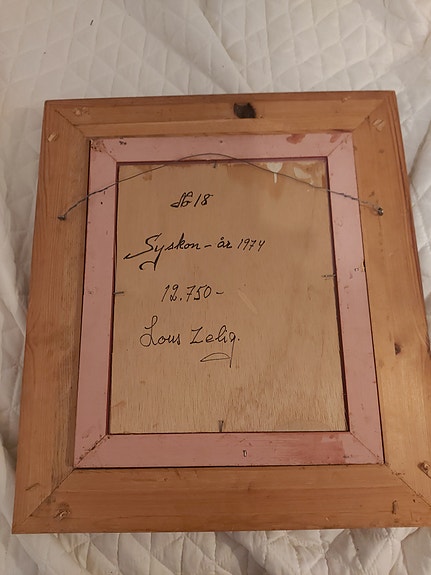 18
Syskon - år 1974
12.750-
Lous Zelig.